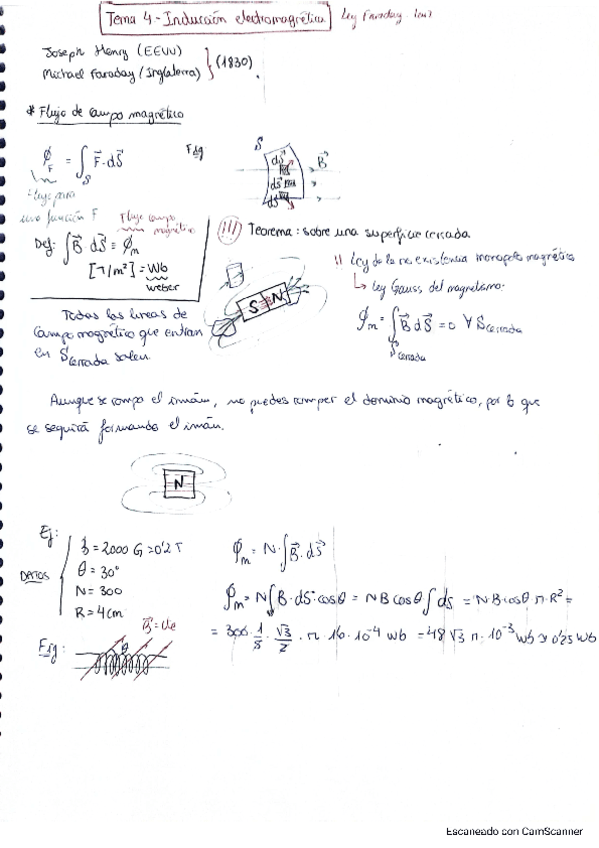 Tema 4 - Inducción electromagnética Ley Faraday - Lenz
Joseph Henry (EEUU)
Michael Faraday (Inglaterra) } (1830)
* Flujo de campo magnético
ϕ_F = ∫_S F⃗·dS⃗
Fig
S dS⃗ B⃗
dS⃗
dS⃗
flujo para
una función F
Flujo campo magnético
Def: ∫ B⃗·dS⃗ ≡ ϕ_m
[T/m²] = Wb
weber
!!! Teorema: sobre una superficie cerrada
!! Ley de la no existencia monopolo magnético
↳ Ley Gauss del magnetismo:
ϕ_m = ∫_{S cerrada} B⃗ dS⃗ = 0 ∀ S cerrada
S N
Todas las líneas de
campo magnético que entran
en S cerrada salen.
Aunque se rompa el imán, no puedes romper el dominio magnético, por lo que
se seguirá formando el imán.
N
Ej:
DATOS
B = 2000 G = 0'2 T
θ = 30°
N = 300
R = 4 cm
ϕ_m = N·∫ B⃗·dS⃗
ϕ_m = N∫ B·dS·cosθ = NB cosθ ∫ ds = N·B·cosθ π·R² =
= 300·1/5·√3/2·π·16·10⁻⁴ Wb = 48√3 π·10⁻³ Wb ≈ 0'25 Wb
Fig:
θ
Escaneado con CamScanner